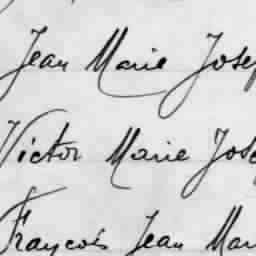 Jean Marie Josep
Victor Marie Jose
François Jean Mari